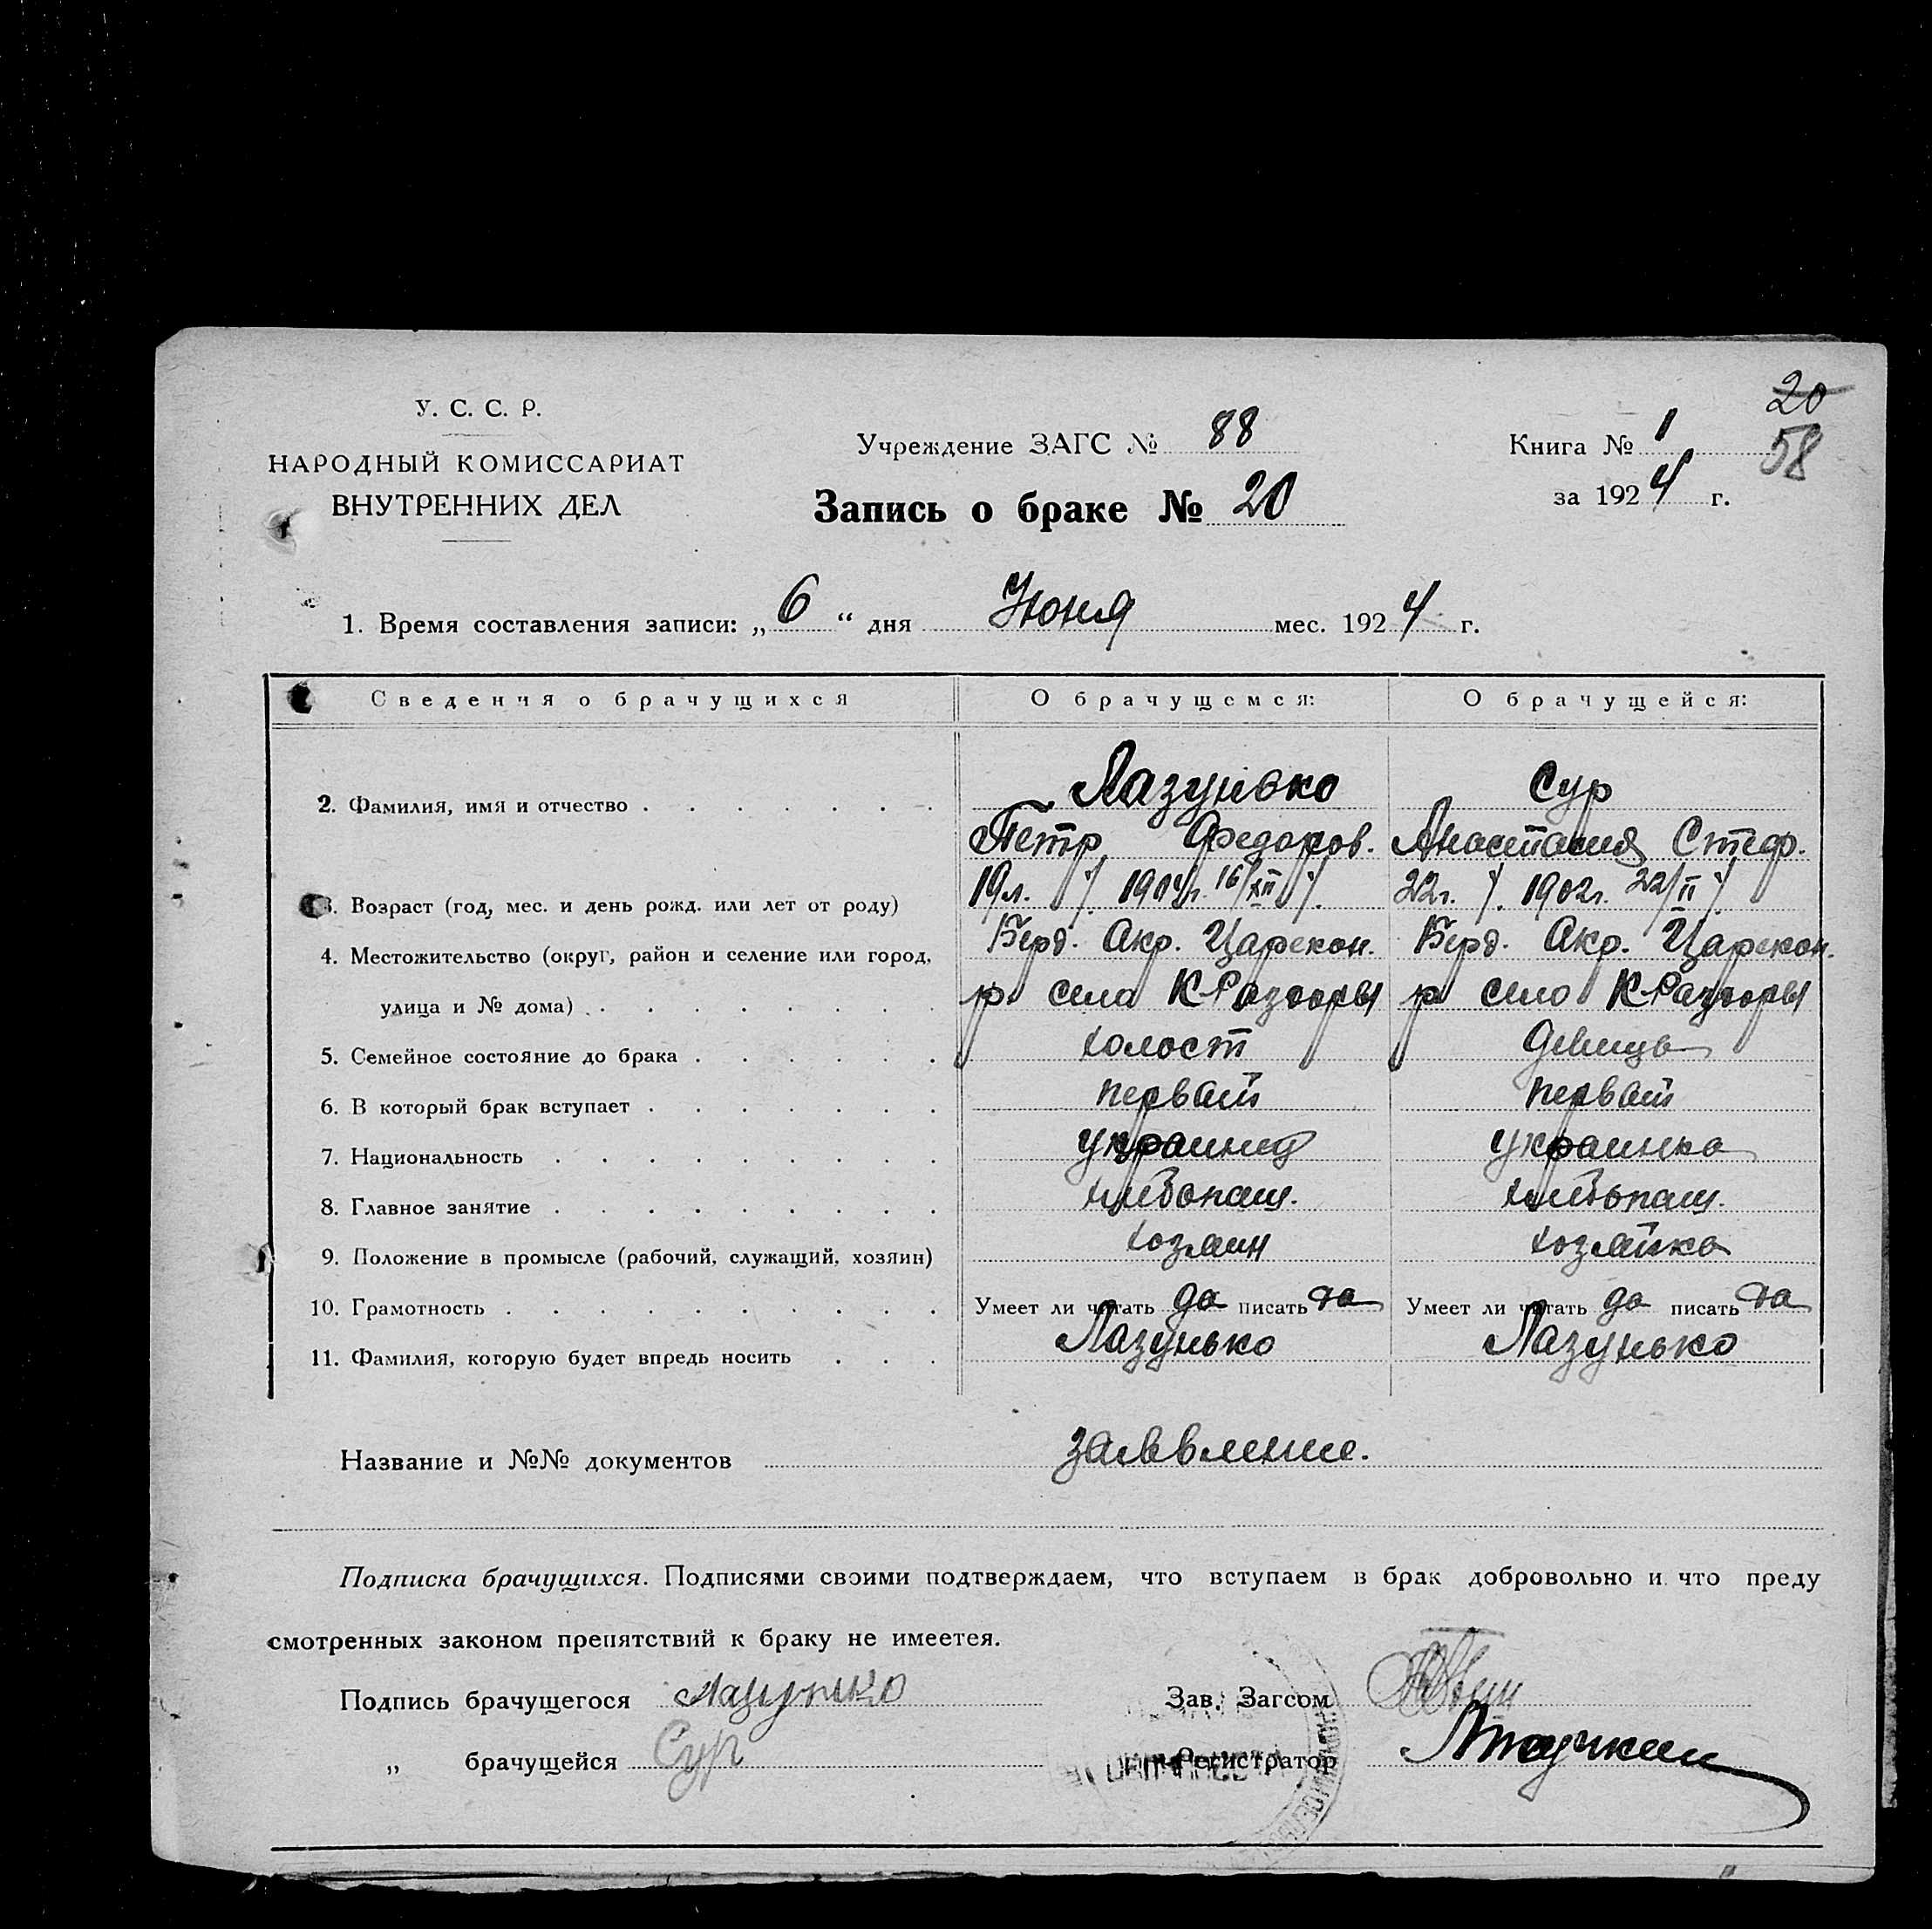 20
У. С. С. Р.
НАРОДНЫЙ КОМИССАРИАТ
ВНУТРЕННИХ ДЕЛ
Учреждение ЗАГС № 88
Книга № 1
58
Запись о браке № 20
за 1924 г.
1. Время составления записи: „6“ дня Июня мес. 1924 г.
Сведения о брачущихся О брачущемся: О брачущейся:
2. Фамилия, имя и отчество Лазунько Сур
Петр Федоров. Анастасия Стеф.
3. Возраст (год, мес. и день рожд. или лет от роду) 19л. 1904г. 16/XII 22г. 1902г. 22/II
4. Местожительство (округ, район и селение или город, Берд. Акр. Царекон. Берд. Акр. Царекон.
улица и № дома) р село К-Разгоры р село К-Разгоры
5. Семейное состояние до брака холост девица
6. В который брак вступает первый первый
7. Национальность украинец украинка
8. Главное занятие хлебопаш. хлебопаш.
9. Положение в промысле (рабочий, служащий, хозяин) хозяин хозяйка
10. Грамотность Умеет ли читать да писать да Умеет ли читать да писать да
11. Фамилия, которую будет впредь носить Лазунько Лазунько
Название и №№ документов заявление.
Подписка брачущихся. Подписями своими подтверждаем, что вступаем в брак добровольно и что преду
смотренных законом препятствий к браку не имеется.
Подпись брачущегося Лазунько Зав. Загсом
„ брачущейся Сур Регистратор